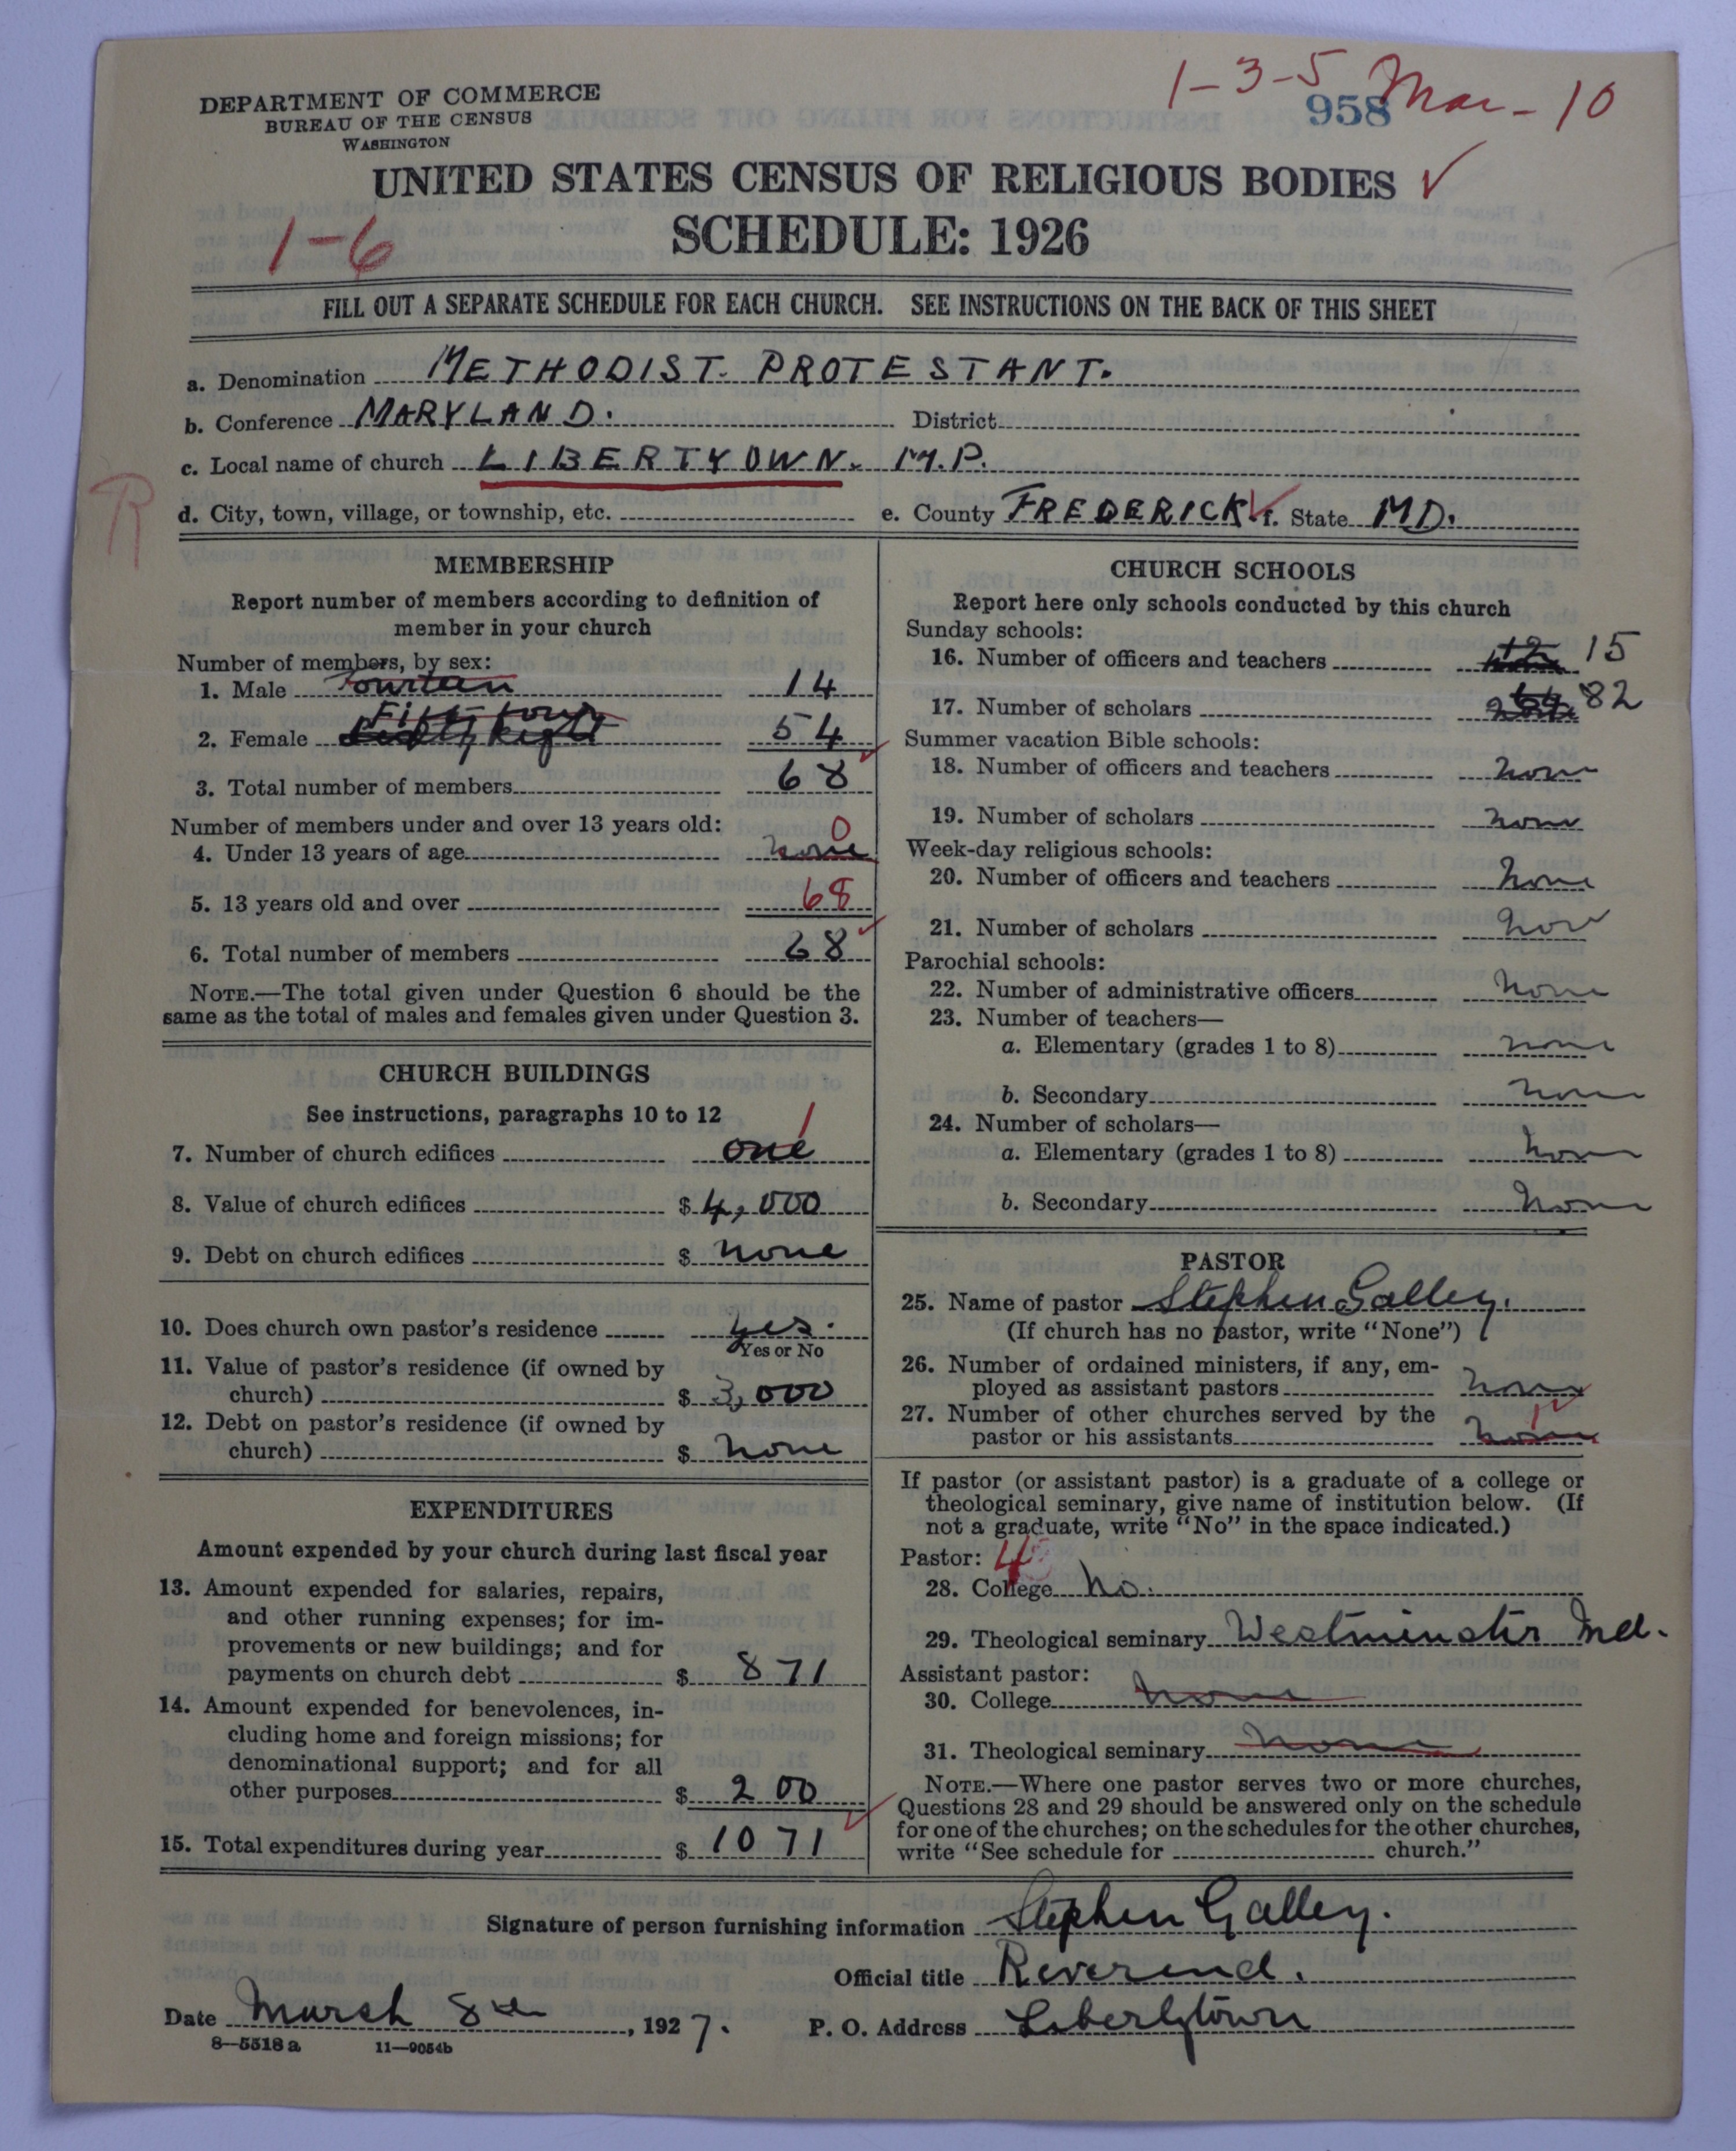 1-3-5 Mar-10
958
DEPARTMENT OF COMMERCE
BUREAU OF THE CENSUS
WASHINGTON
UNITED STATES CENSUS OF RELIGIOUS BODIES ✓
1-6
SCHEDULE: 1926
FILL OUT A SEPARATE SCHEDULE FOR EACH CHURCH. SEE INSTRUCTIONS ON THE BACK OF THIS SHEET
a. Denomination METHODIST. PROTESTANT.
b. Conference MARYLAND. District
c. Local name of church LIBERTYOWN. M.P.
R
d. City, town, village, or township, etc. e. County FREDERICK f. State MD.
MEMBERSHIP
Report number of members according to definition of
member in your church
Number of members, by sex:
1. Male Fourteen 14
2. Female Fifty four 54
3. Total number of members 68
Number of members under and over 13 years old:
4. Under 13 years of age none 0
5. 13 years old and over 68
6. Total number of members 68
NOTE.—The total given under Question 6 should be the
same as the total of males and females given under Question 3.
CHURCH BUILDINGS
See instructions, paragraphs 10 to 12
7. Number of church edifices one 1
8. Value of church edifices $ 4,000
9. Debt on church edifices $ none
10. Does church own pastor's residence yes.
Yes or No
11. Value of pastor's residence (if owned by
church) $ 3,000
12. Debt on pastor's residence (if owned by
church) $ none
EXPENDITURES
Amount expended by your church during last fiscal year
13. Amount expended for salaries, repairs,
and other running expenses; for im-
provements or new buildings; and for
payments on church debt $ 871
14. Amount expended for benevolences, in-
cluding home and foreign missions; for
denominational support; and for all
other purposes $ 200
15. Total expenditures during year $ 1071
CHURCH SCHOOLS
Report here only schools conducted by this church
Sunday schools:
16. Number of officers and teachers 15
17. Number of scholars 82
Summer vacation Bible schools:
18. Number of officers and teachers none
19. Number of scholars none
Week-day religious schools:
20. Number of officers and teachers none
21. Number of scholars none
Parochial schools:
22. Number of administrative officers none
23. Number of teachers—
a. Elementary (grades 1 to 8) none
b. Secondary none
24. Number of scholars—
a. Elementary (grades 1 to 8) none
b. Secondary none
PASTOR
25. Name of pastor Stephen Galley.
(If church has no pastor, write "None")
26. Number of ordained ministers, if any, em-
ployed as assistant pastors none
27. Number of other churches served by the
pastor or his assistants none 1
If pastor (or assistant pastor) is a graduate of a college or
theological seminary, give name of institution below. (If
not a graduate, write "No" in the space indicated.)
Pastor:
28. College no.
29. Theological seminary Westminster Md.
Assistant pastor:
30. College none
31. Theological seminary none
NOTE.—Where one pastor serves two or more churches,
Questions 28 and 29 should be answered only on the schedule
for one of the churches; on the schedules for the other churches,
write "See schedule for church."
Signature of person furnishing information Stephen Galley.
Official title Reverend.
Date March 8th, 1927. P. O. Address Libertytown
8—5518a 11—9054b